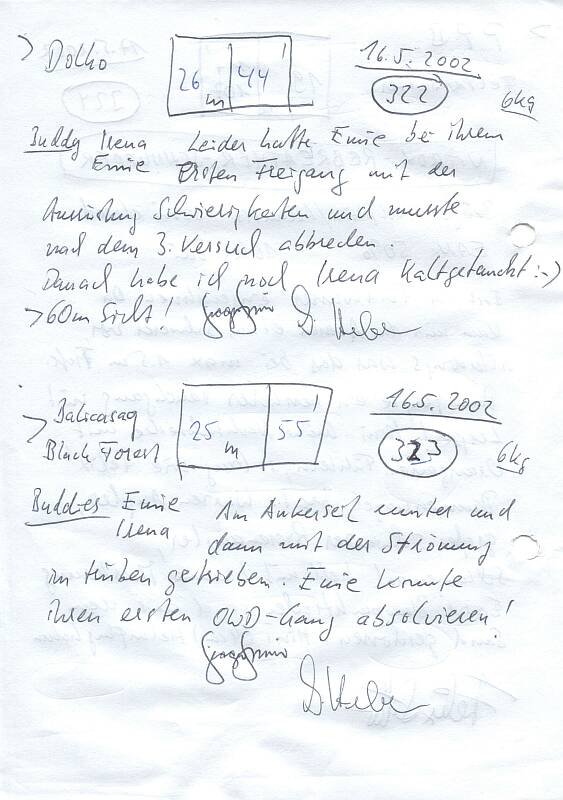 > Doljo 26 m 44' 16.5. 2002
322 6kg
Buddy Irena Leider hatte Emie bei ihrem
Emie ersten Freigang mit der
Ausrüstung Schwierigkeiten und musste
nach dem 3. Versuch abbrechen.
Danach habe ich noch Irena kaltgetaucht :-)
> 60m Sicht!
> Balicasag 25 m 55' 16.5. 2002
Black Forest 323 6kg
Buddies Emie Am Ankerseil runter und
Irena dann mit der Strömung
im trüben getrieben. Emie konnte
ihren ersten OWD-Gang absolvieren!